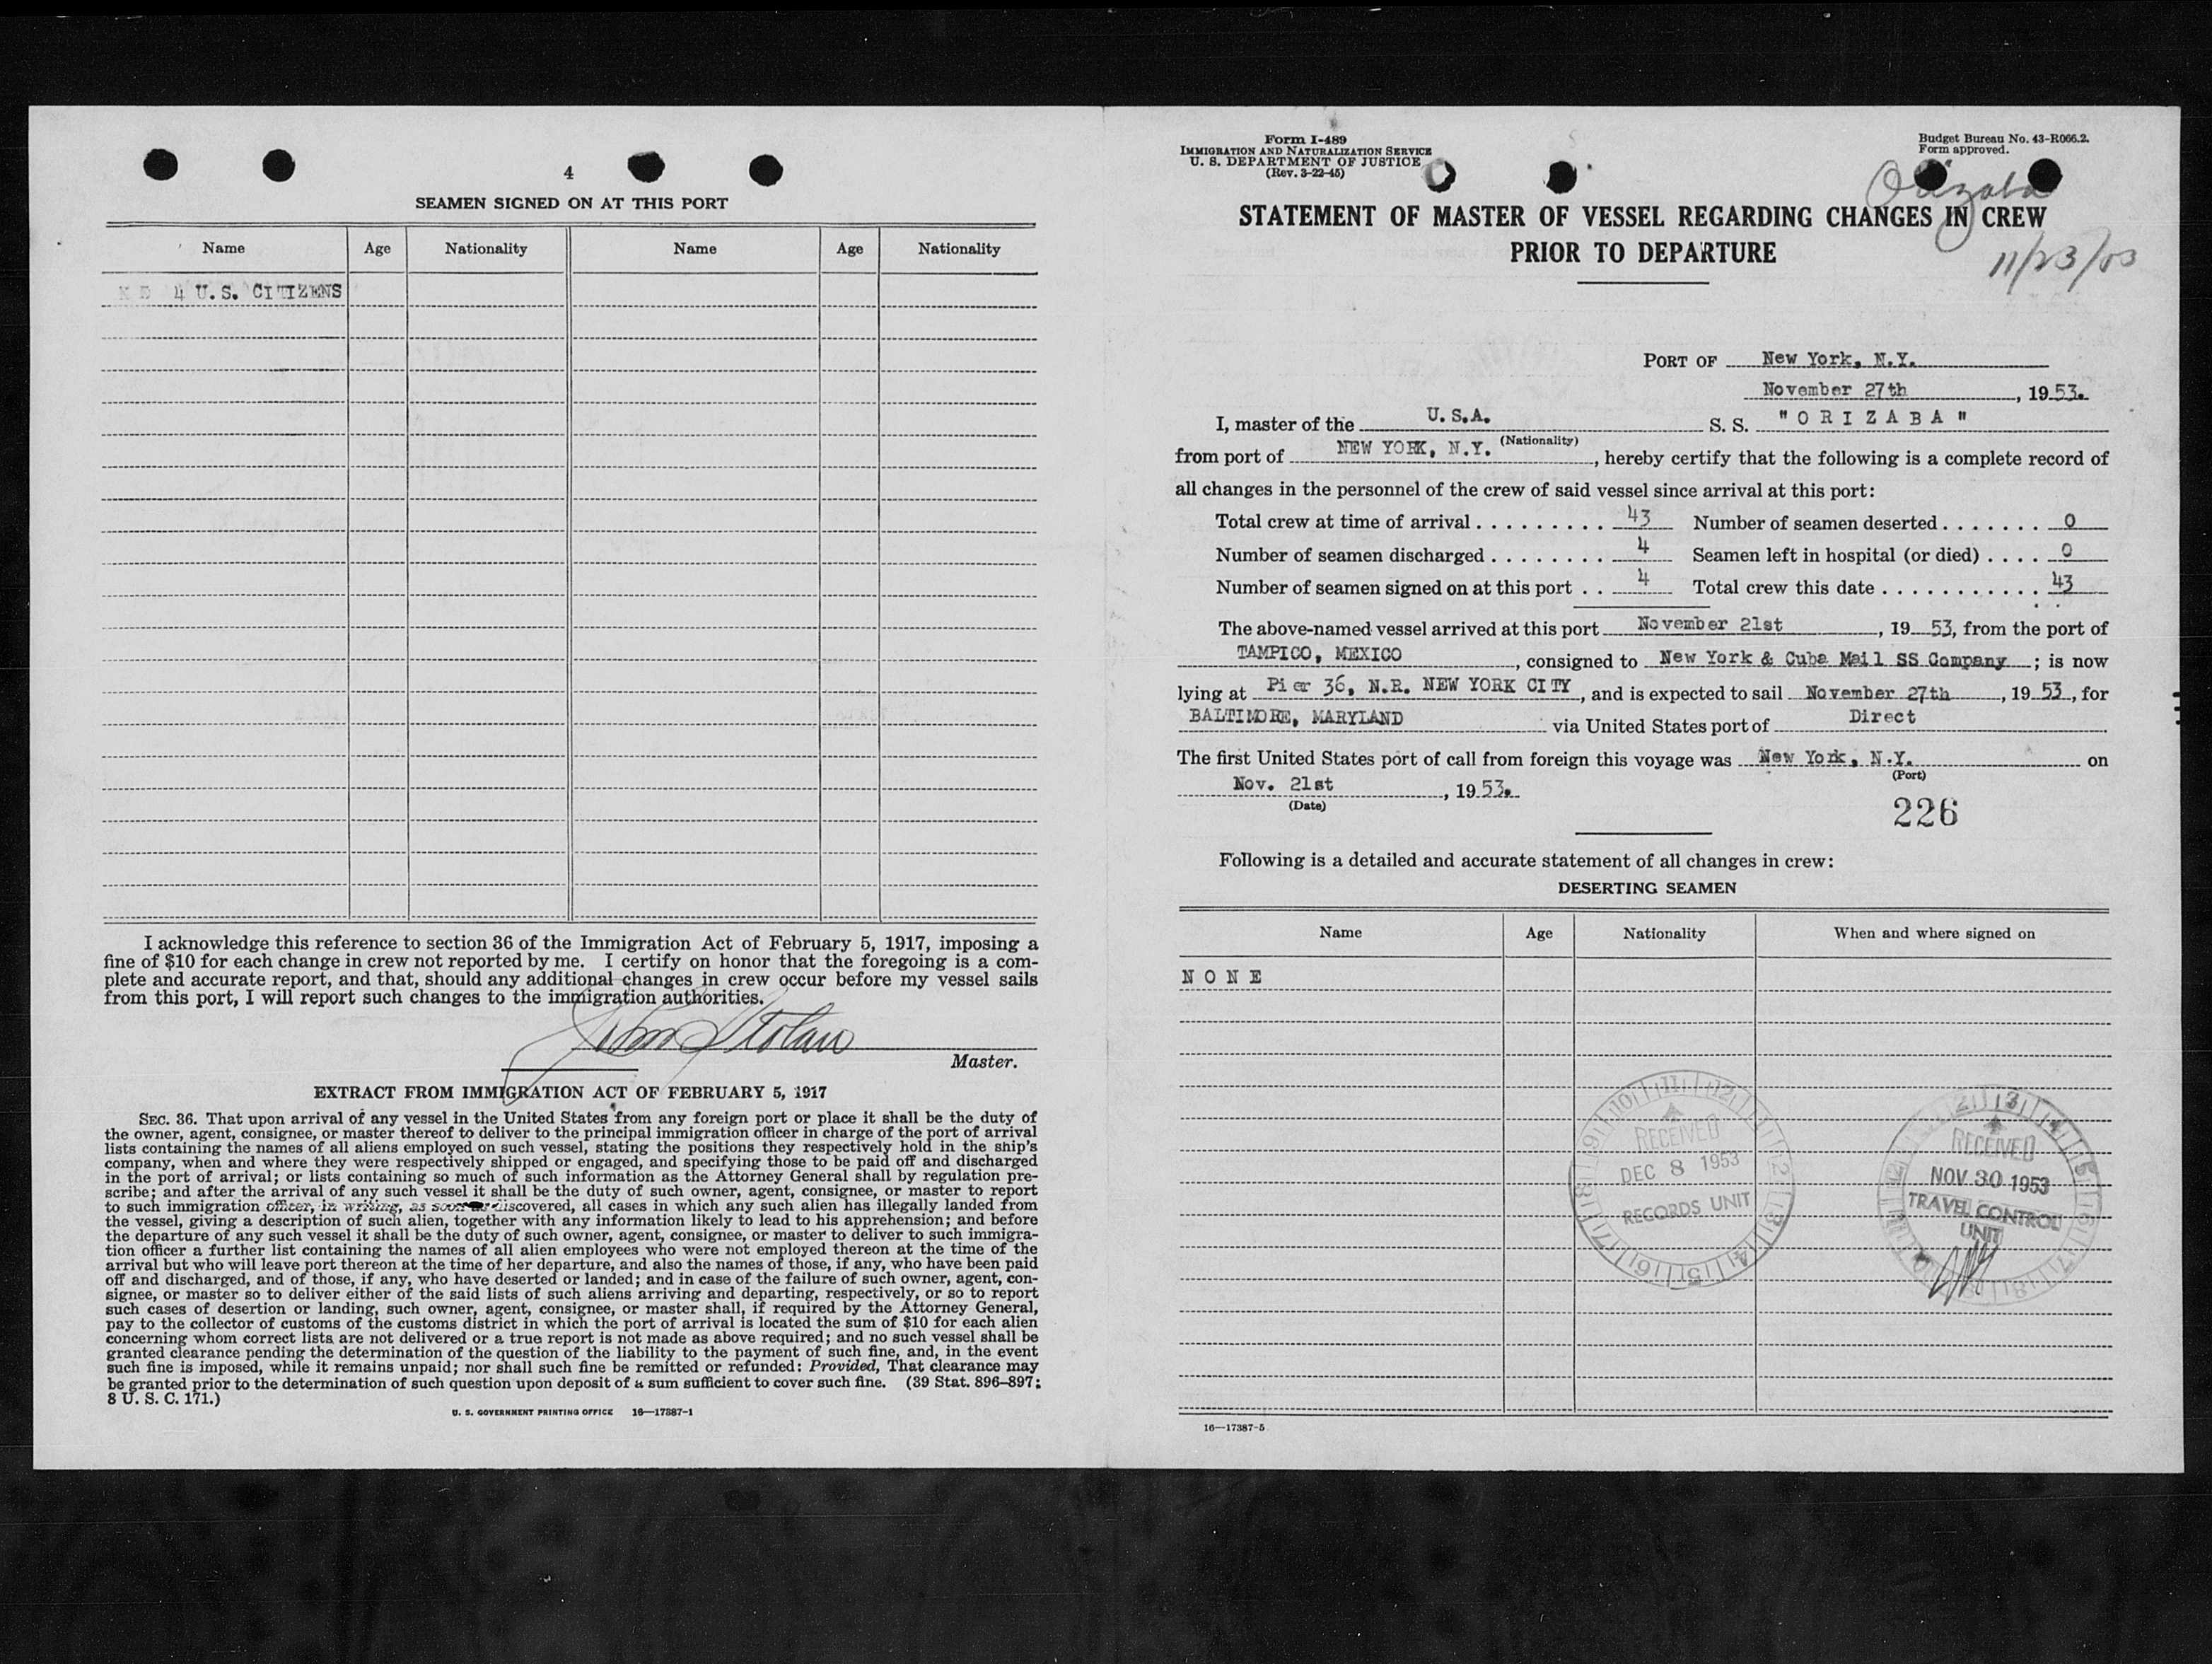 4
SEAMEN SIGNED ON AT THIS PORT
Name Age Nationality Name Age Nationality
4 U.S. CITIZENS
I acknowledge this reference to section 36 of the Immigration Act of February 5, 1917, imposing a
fine of $10 for each change in crew not reported by me. I certify on honor that the foregoing is a com-
plete and accurate report, and that, should any additional changes in crew occur before my vessel sails
from this port, I will report such changes to the immigration authorities.
Master.
EXTRACT FROM IMMIGRATION ACT OF FEBRUARY 5, 1917
SEC. 36. That upon arrival of any vessel in the United States from any foreign port or place it shall be the duty of
the owner, agent, consignee, or master thereof to deliver to the principal immigration officer in charge of the port of arrival
lists containing the names of all aliens employed on such vessel, stating the positions they respectively hold in the ship's
company, when and where they were respectively shipped or engaged, and specifying those to be paid off and discharged
in the port of arrival; or lists containing so much of such information as the Attorney General shall by regulation pre-
scribe; and after the arrival of any such vessel it shall be the duty of such owner, agent, consignee, or master to report
to such immigration officer, in writing, as soon as discovered, all cases in which any such alien has illegally landed from
the vessel, giving a description of such alien, together with any information likely to lead to his apprehension; and before
the departure of any such vessel it shall be the duty of such owner, agent, consignee, or master to deliver to such immigra-
tion officer a further list containing the names of all alien employees who were not employed thereon at the time of the
arrival but who will leave port thereon at the time of her departure, and also the names of those, if any, who have been paid
off and discharged, and of those, if any, who have deserted or landed; and in case of the failure of such owner, agent, con-
signee, or master so to deliver either of the said lists of such aliens arriving and departing, respectively, or so to report
such cases of desertion or landing, such owner, agent, consignee, or master shall, if required by the Attorney General,
pay to the collector of customs of the customs district in which the port of arrival is located the sum of $10 for each alien
concerning whom correct lists are not delivered or a true report is not made as above required; and no such vessel shall be
granted clearance pending the determination of the question of the liability to the payment of such fine, and, in the event
such fine is imposed, while it remains unpaid; nor shall such fine be remitted or refunded: Provided, That clearance may
be granted prior to the determination of such question upon deposit of a sum sufficient to cover such fine. (39 Stat. 896–897;
8 U. S. C. 171.)
U. S. GOVERNMENT PRINTING OFFICE 16—17387-1
Form I-489
IMMIGRATION AND NATURALIZATION SERVICE
U. S. DEPARTMENT OF JUSTICE
(Rev. 3-22-45)
Budget Bureau No. 43-R066.2.
Form approved.
Orizaba
STATEMENT OF MASTER OF VESSEL REGARDING CHANGES IN CREW
PRIOR TO DEPARTURE
11/23/53
PORT OF New York, N.Y.
November 27th, 1953.
I, master of the U.S.A. S. S. "ORIZABA"
(Nationality)
from port of NEW YORK, N.Y., hereby certify that the following is a complete record of
all changes in the personnel of the crew of said vessel since arrival at this port:
Total crew at time of arrival 43 Number of seamen deserted 0
Number of seamen discharged 4 Seamen left in hospital (or died) 0
Number of seamen signed on at this port 4 Total crew this date 43
The above-named vessel arrived at this port November 21st, 1953, from the port of
TAMPICO, MEXICO, consigned to New York & Cuba Mail SS Company; is now
lying at Pier 36, N.R. NEW YORK CITY, and is expected to sail November 27th, 1953, for
BALTIMORE, MARYLAND via United States port of Direct
The first United States port of call from foreign this voyage was New York, N.Y. on
(Port)
Nov. 21st, 1953.
(Date)
226
Following is a detailed and accurate statement of all changes in crew:
DESERTING SEAMEN
Name Age Nationality When and where signed on
NONE
RECEIVED
DEC 8 1953
RECORDS UNIT
RECEIVED
NOV 30 1953
TRAVEL CONTROL
UNIT
16—17387-5